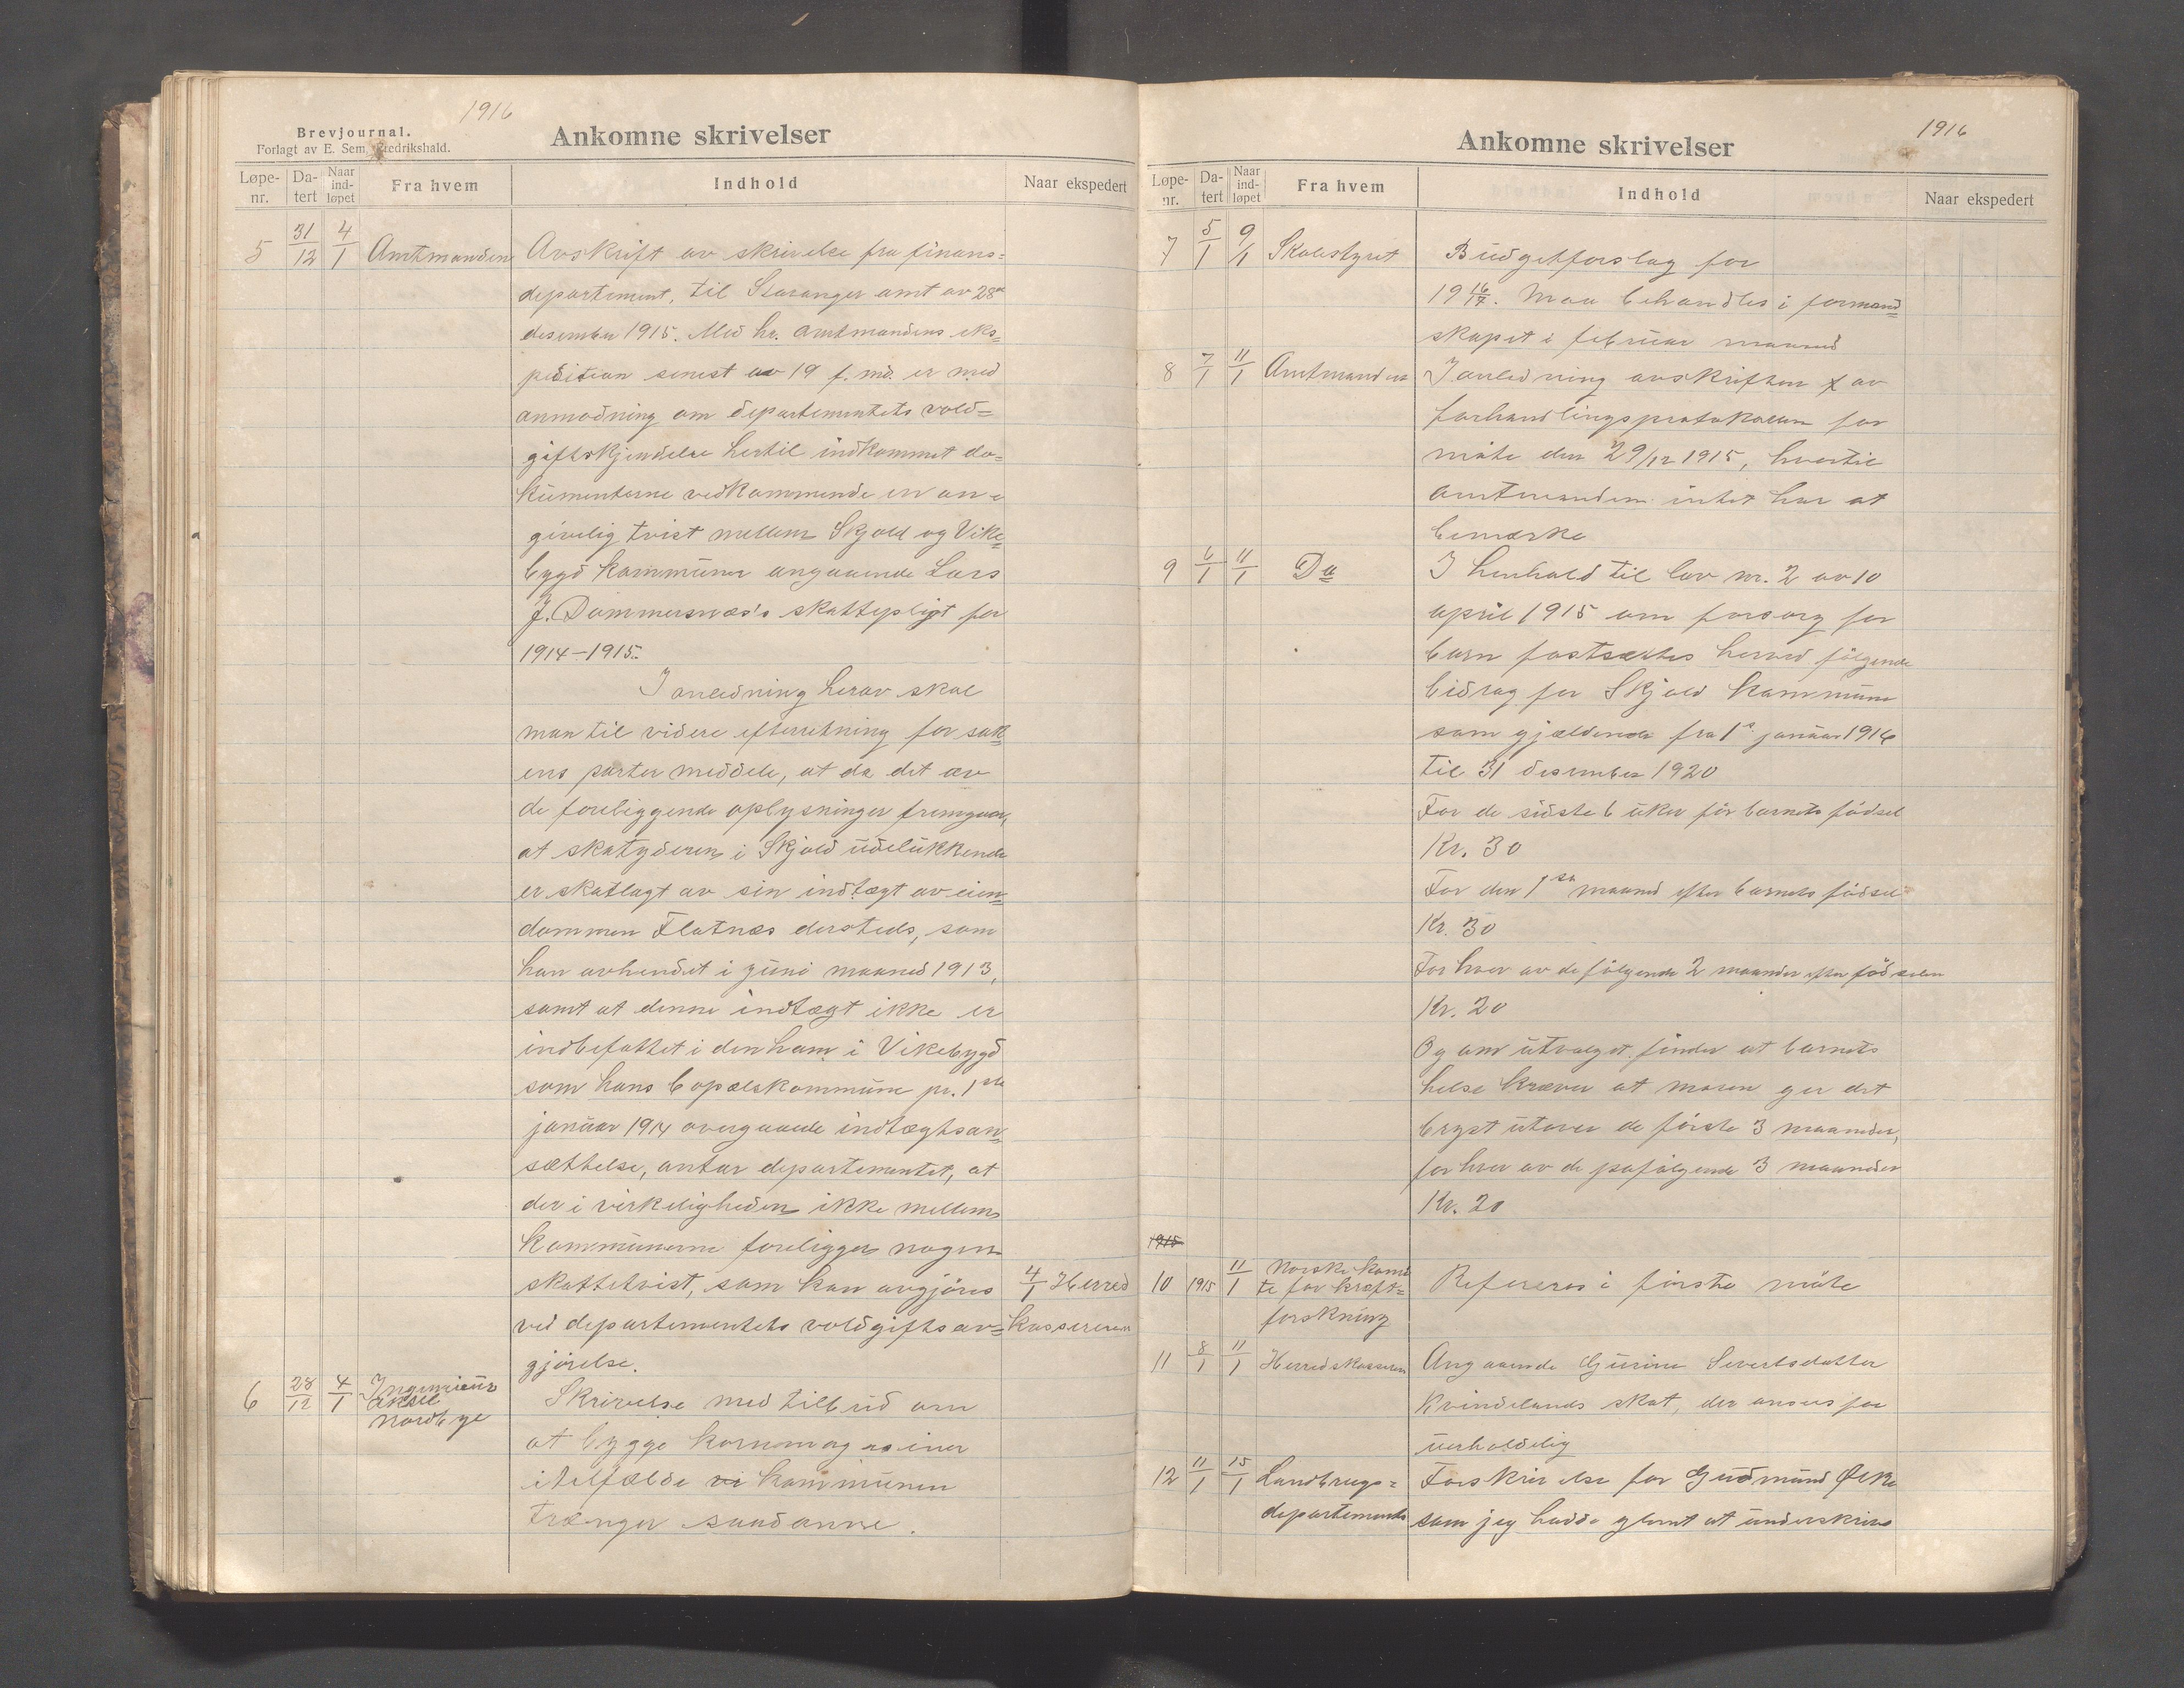 1916
Brevjournal.
Forlagt av E. Sem, Fredrikshald.
Ankomne skrivelser
Løpe-nr. Da-tert Naar ind-løpet Fra hvem Indhold Naar ekspedert
5 31/12 4/1 Amtmanden Avskrift av skrivelse fra finans=
departement, til Stavanger amt av 28de
desember 1915. Med hr. amtmandens eks=
pedition senest av 19 f. md. er med
anmodning om departementets vold=
giftskjendelse hertil indkommet do=
kumenterne vedkommende en an=
givelig tvist mellem Skjold og Vike=
bygd kommuner angaaende Lars
J. Dommersnæs's skattepligt for
1914-1915.
I anledning herav skal
man til videre efterretning for sak=
ens parter meddele, at da det av
de foreliggende oplysninger fremgaar,
at skatyderen i Skjold udelukkende
er skatlagt av sin indtægt av eien=
dommen Flatnæs dersteds, som
han avhendet i juni maaned 1913,
samt at denne indtægt ikke er
indbefattet i den ham i Vikebygd
som hans bopælskommune pr. 1ste
januar 1914 overgaaede indtægtsan=
sættelse, antar departementet, at
der i virkeligheden ikke mellem
kommunerne foreligger nogen
skattetvist, som kan avgjøres 4/1 Herred
ved departementets voldgiftsav= kassereren
gjørelse.
6 28/12 4/1 Ingeniør Aksel Nordbye Skrivelse med tilbud om
at bygge kornmagasiner
i tilfælde vi kommunen
trænger saadanne.
1916
Ankomne skrivelser
Løpe-nr. Da-tert Naar ind-løpet Fra hvem Indhold Naar ekspedert
7 5/1 9/1 Skolestyret Budgetforslag for
19 16/17. Maa behandles i formand=
skapet i februar maaned
8 7/1 11/1 Amtmanden I anledning avskriften av
forhandlingsprotokollen for
møte den 29/12 1915, hvortil
amtmanden intet har at
bemærke
9 6/1 11/1 Do I henhold til lov nr. 2 av 10
april 1915 om forsorg for
barn fastsættes herved følgende
bidrag for Skjold kommune
som gjældende fra 1ste januar 1916
til 31 desember 1920
For de sidste 6 uker før barnets fødsel
Kr. 30
For den 1ste maaned efter barnets fødsel
Kr. 30
For hver av de følgende 2 maaneder efter fødselen
Kr. 20
Og om utvalget finder at barnets
helse kræver at moren gir det
bryst utover de første 3 maaneder,
for hver av de påfølgende 3 maaneder
Kr. 20
1915
10 1915 11/1 Norske komi
te for kræft=
forskning Refereres i første møte
11 8/1 11/1 Herredskasseren Angaaende Gurine Severtsdatter
Kvindelands skat, der ansees for
uerholdelig
12 11/1 15/1 Landbrugs=
departementet Forskrivelse for Gudmund Ølke
som jeg hadde glemt at underskrive